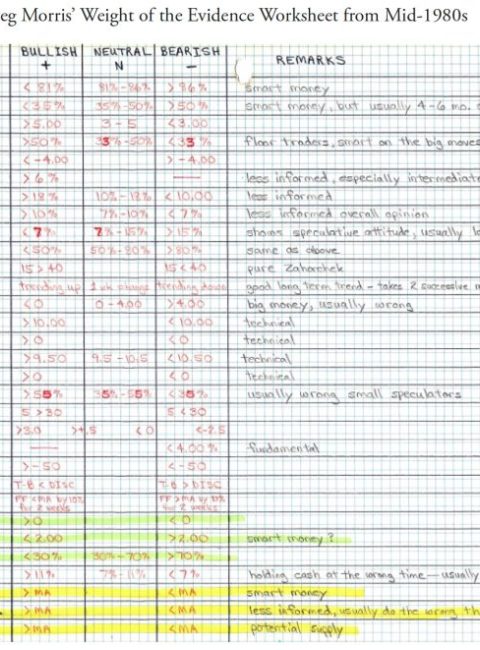 eg Morris' Weight of the Evidence Worksheet from Mid-1980s
BULLISH NEUTRAL BEARISH REMARKS
+ N -
< 81% 81%-86% > 86% smart money
< 35% 35%-50% > 50% smart money, but usually 4-6 mo.
> 5.00 3-5 < 3.00
> 50% 33%-50% < 33% floor traders, smart on the big moves
< -4.00 > -4.00
> 6% — less informed, especially intermediate
> 18% 10%-18% < 10.00 less informed
> 10% 7%-10% < 7% less informed overall opinion
< 7% 7%-15% > 15% shows speculative attitude, usually
< 50% 50%-80% > 80% same as above
15 > 40 15 < 40 pure Zahorchek
trending up 1 wk change trending down good long term trend - takes 2 successive
< 0 0-4.00 > 4.00 big money, usually wrong
> 10.00 < 10.00 technical
> 0 < 0 technical
> 9.50 9.5-10.5 < 10.50 technical
> 0 < 0 technical
> 55% 35%-55% < 35% usually wrong small speculators
5 > 30 5 < 30
> 3.0 > 1.5 < 0 < -2.5
— < 4.00% fundamental
> -50 < -50
T-B < DISC T-B > DISC
FF < MA by 10% FF > MA by
for 2 weeks for 2 weeks
> 0 < 0
< 2.00 > 2.00 smart money?
< 30% 30%-70% > 70%
> 11% 7%-11% < 7% holding cash at the wrong time - usually
> MA < MA smart money
> MA < MA less informed, usually do the wrong th
> MA < MA potential supply